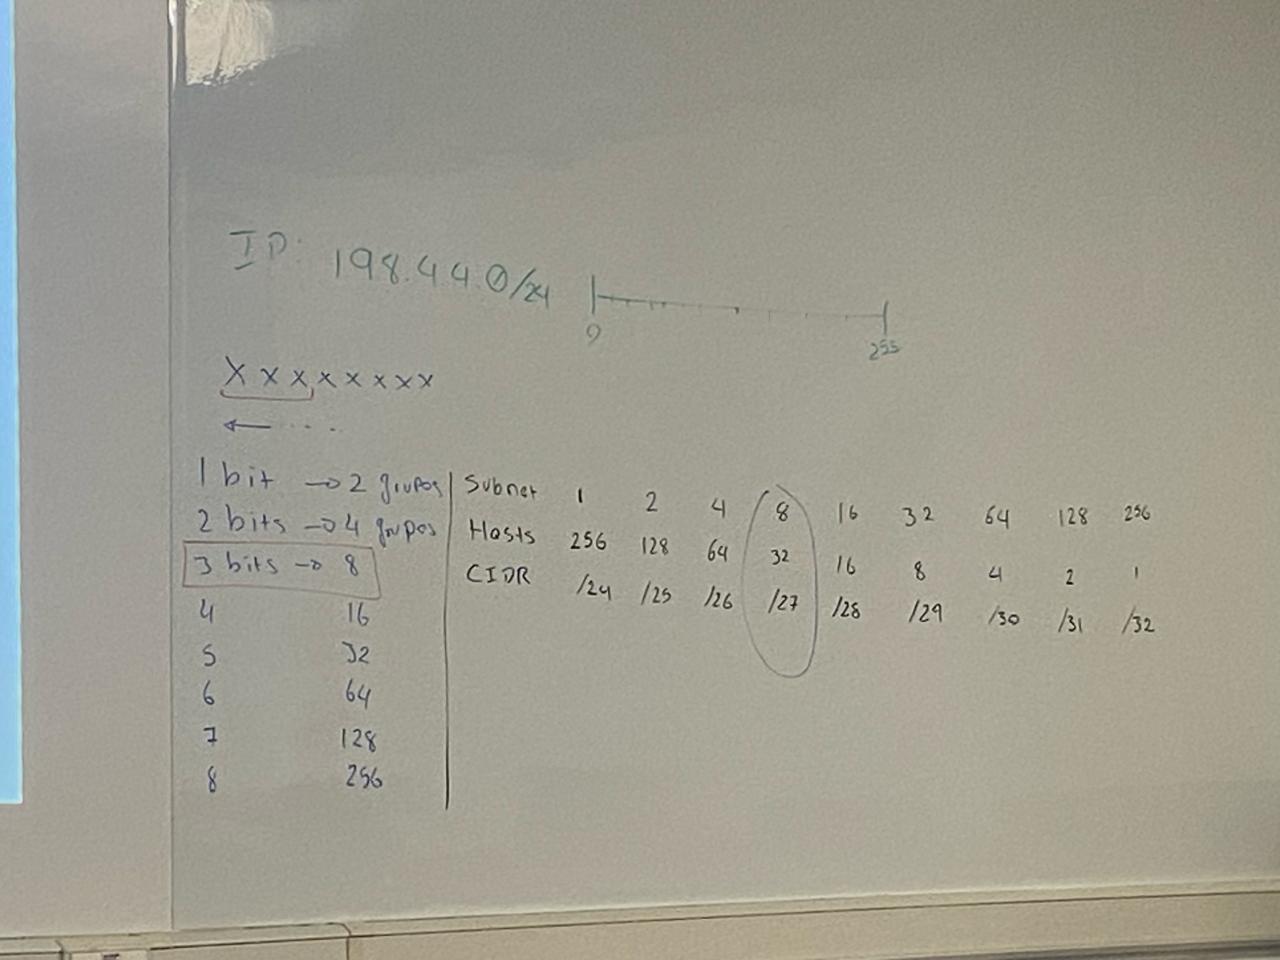 IP: 198.44.0/24
0 255
X X X X X X X X
← . . .
1 bit → 2 grupos
2 bits → 4 grupos
3 bits → 8
4 16
5 32
6 64
7 128
8 256
Subnet 1 2 4 8 16 32 64 128 256
Hosts 256 128 64 32 16 8 4 2 1
CIDR /24 /25 /26 /27 /28 /29 /30 /31 /32